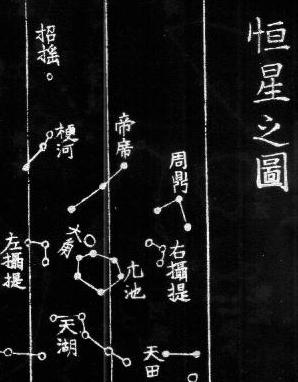 恒星之圖
周鼎
右攝提
天田
帝席
亢池
大角
招搖
梗河
天湖
左攝提